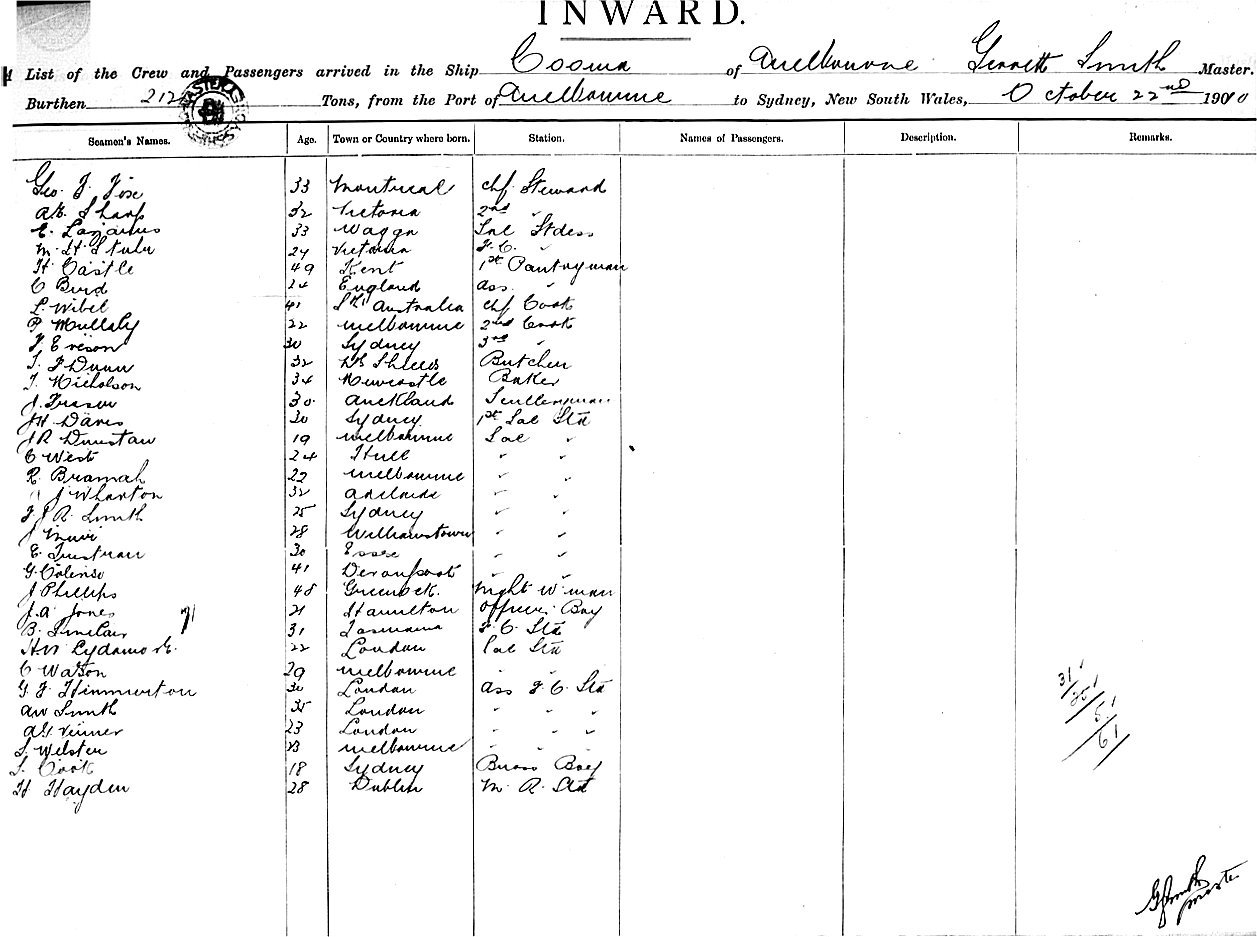 INWARD.
List of the Crew and Passengers arrived in the Ship Cooma of Melbourne Gerrett Smith Master.
Burthen 212 Tons, from the Port of Melbourne to Sydney, New South Wales, October 22nd 1900
Seamen's Names. Age. Town or Country where born. Station. Names of Passengers. Description. Remarks.
Geo. F. 33 Montreal chf. Steward
Sharp 32 Victoria 2nd "
E. Lazarus 33 Wagga Sal Stdess
M. H. 24 Victoria F. C. "
H Castle 49 Kent 1st Pantryman
C Burd 24 England ass. "
L. Wibel 41 Sth Australia chf Cook
P Mullaly 22 Melbourne 2nd Cook
30 Sydney 3rd "
T. F Dunn 32 Sth Shields Butcher
T. Nicholson 34 Newcastle Baker
J. Fraser 30 Auckland Sculleryman
JH Davis 30 Sydney 1st Sal Std
JR Dunstan 19 Melbourne Sal "
C West 24 Hull " "
R. Bramah 22 Melbourne " "
J Wharton 32 Adelaide " "
F J R. Smith 25 Sydney " "
J Muir 28 Williamstown " "
E. Trustran 30 Essex " "
G. Colenso 41 Devonport " "
J Phillips 48 Greenock. Night W man
J. A Jones 21 Hamilton Officers Boy
B. Sinclair 31 Tasmania F. C. Std
22 London Sal Std
C Watson 29 Melbourne " "
G F Himmerton 30 London Ass F. C. Std
AW Smith 35 London " " "
23 London " " "
S. Webster 23 Melbourne " " "
S. Cook 18 Sydney Brass Boy
H Hayden 28 Dublin M. R. Std
31
25
5
61
G Smith
Master